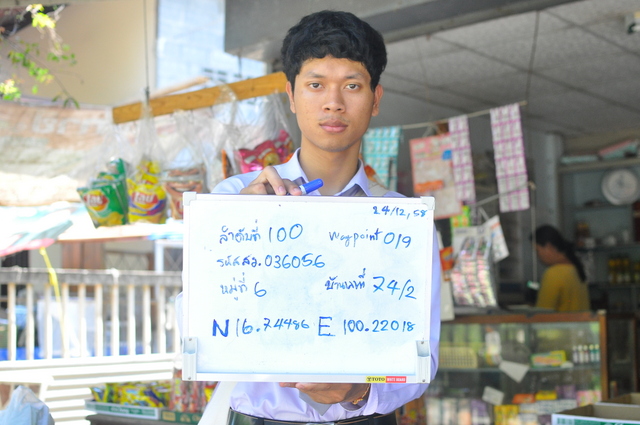 24/12/58
ลำดับที่ 100 waypoint 019
รหัสสว.036056
หมู่ที่ 6 บ้านเลขที่ 74/2
N 16.74486 E 100.22018